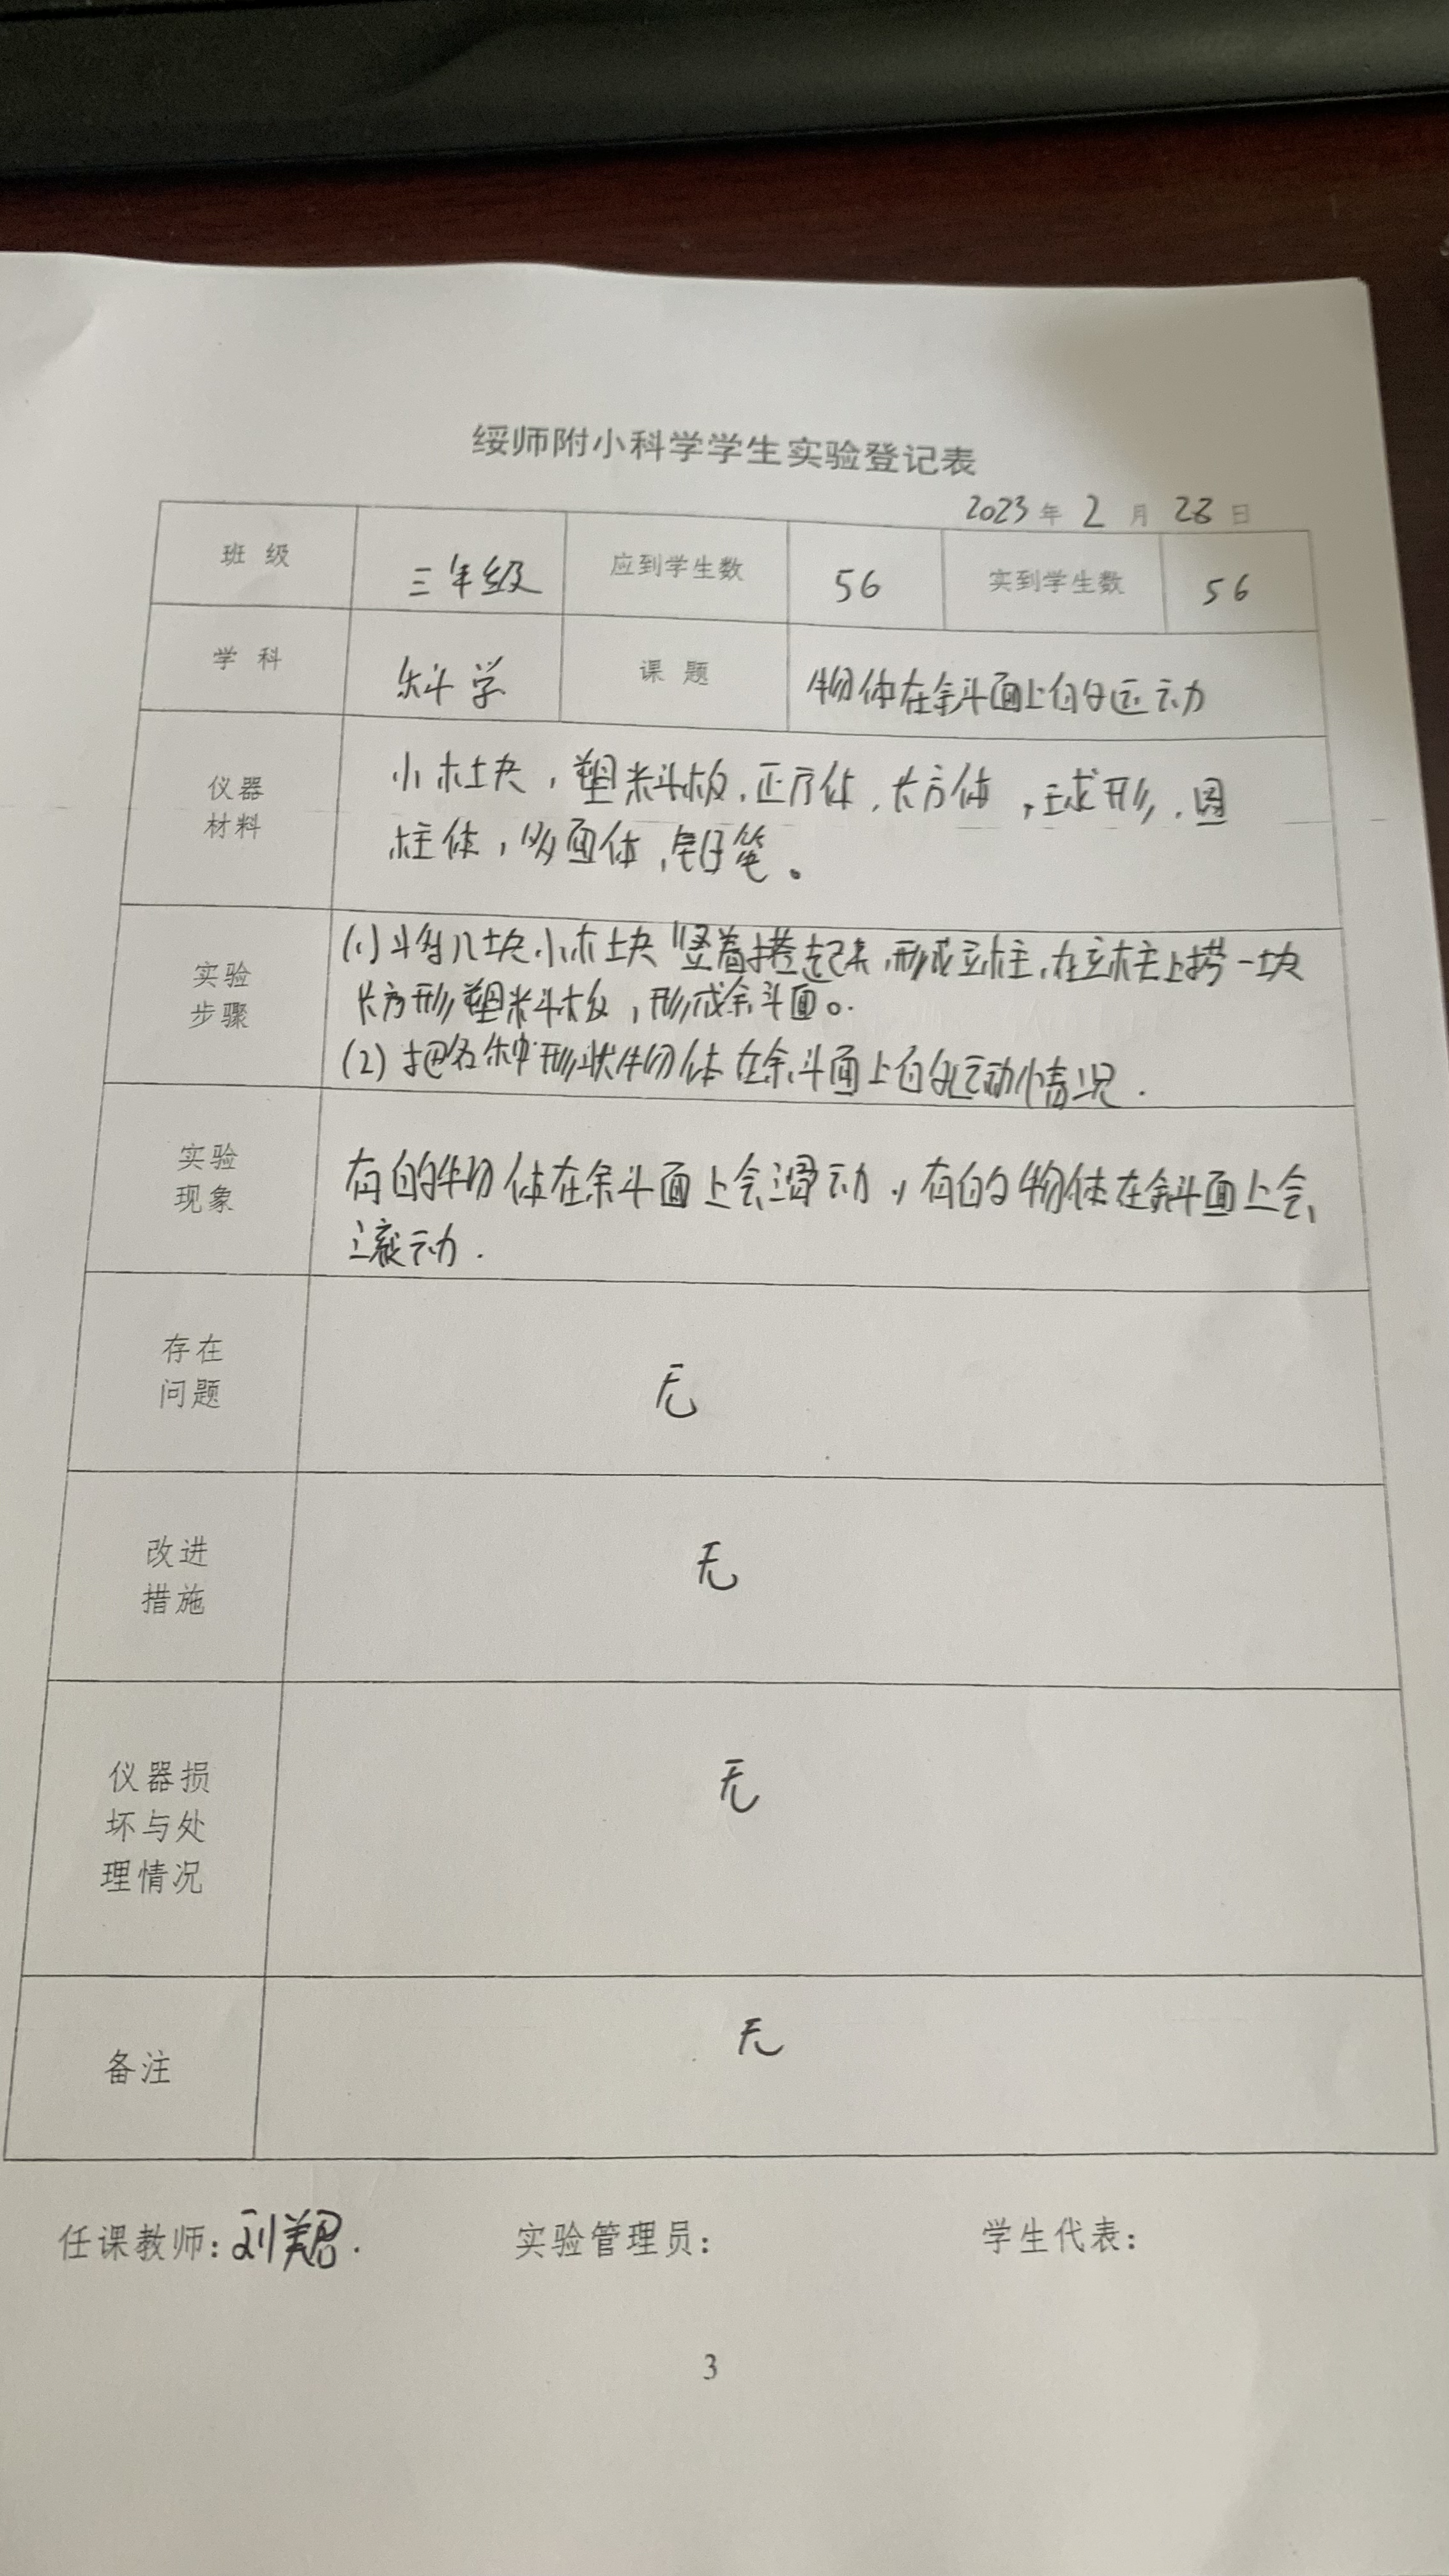 绥师附小科学学生实验登记表
2023 年 2 月 28 日
班 级 三年级 应到学生数 56 实到学生数 56
学 科 科学 课 题 物体在斜面上的运动
仪器
材料
小木块，塑料板，正方体，长方体，球形，圆
柱体，多面体，铅笔。
实验
步骤
(1)将几块小木块竖着搭起来，形成立柱，在立柱上搭一块
长方形塑料板，形成斜面。
(2)把各种形状物体在斜面上的运动情况.
实验
现象
有的物体在斜面上会滑动，有的物体在斜面上会
滚动.
存在
问题
无
改进
措施
无
仪器损
坏与处
理情况
无
备注
无
任课教师：刘翔. 实验管理员： 学生代表：
3